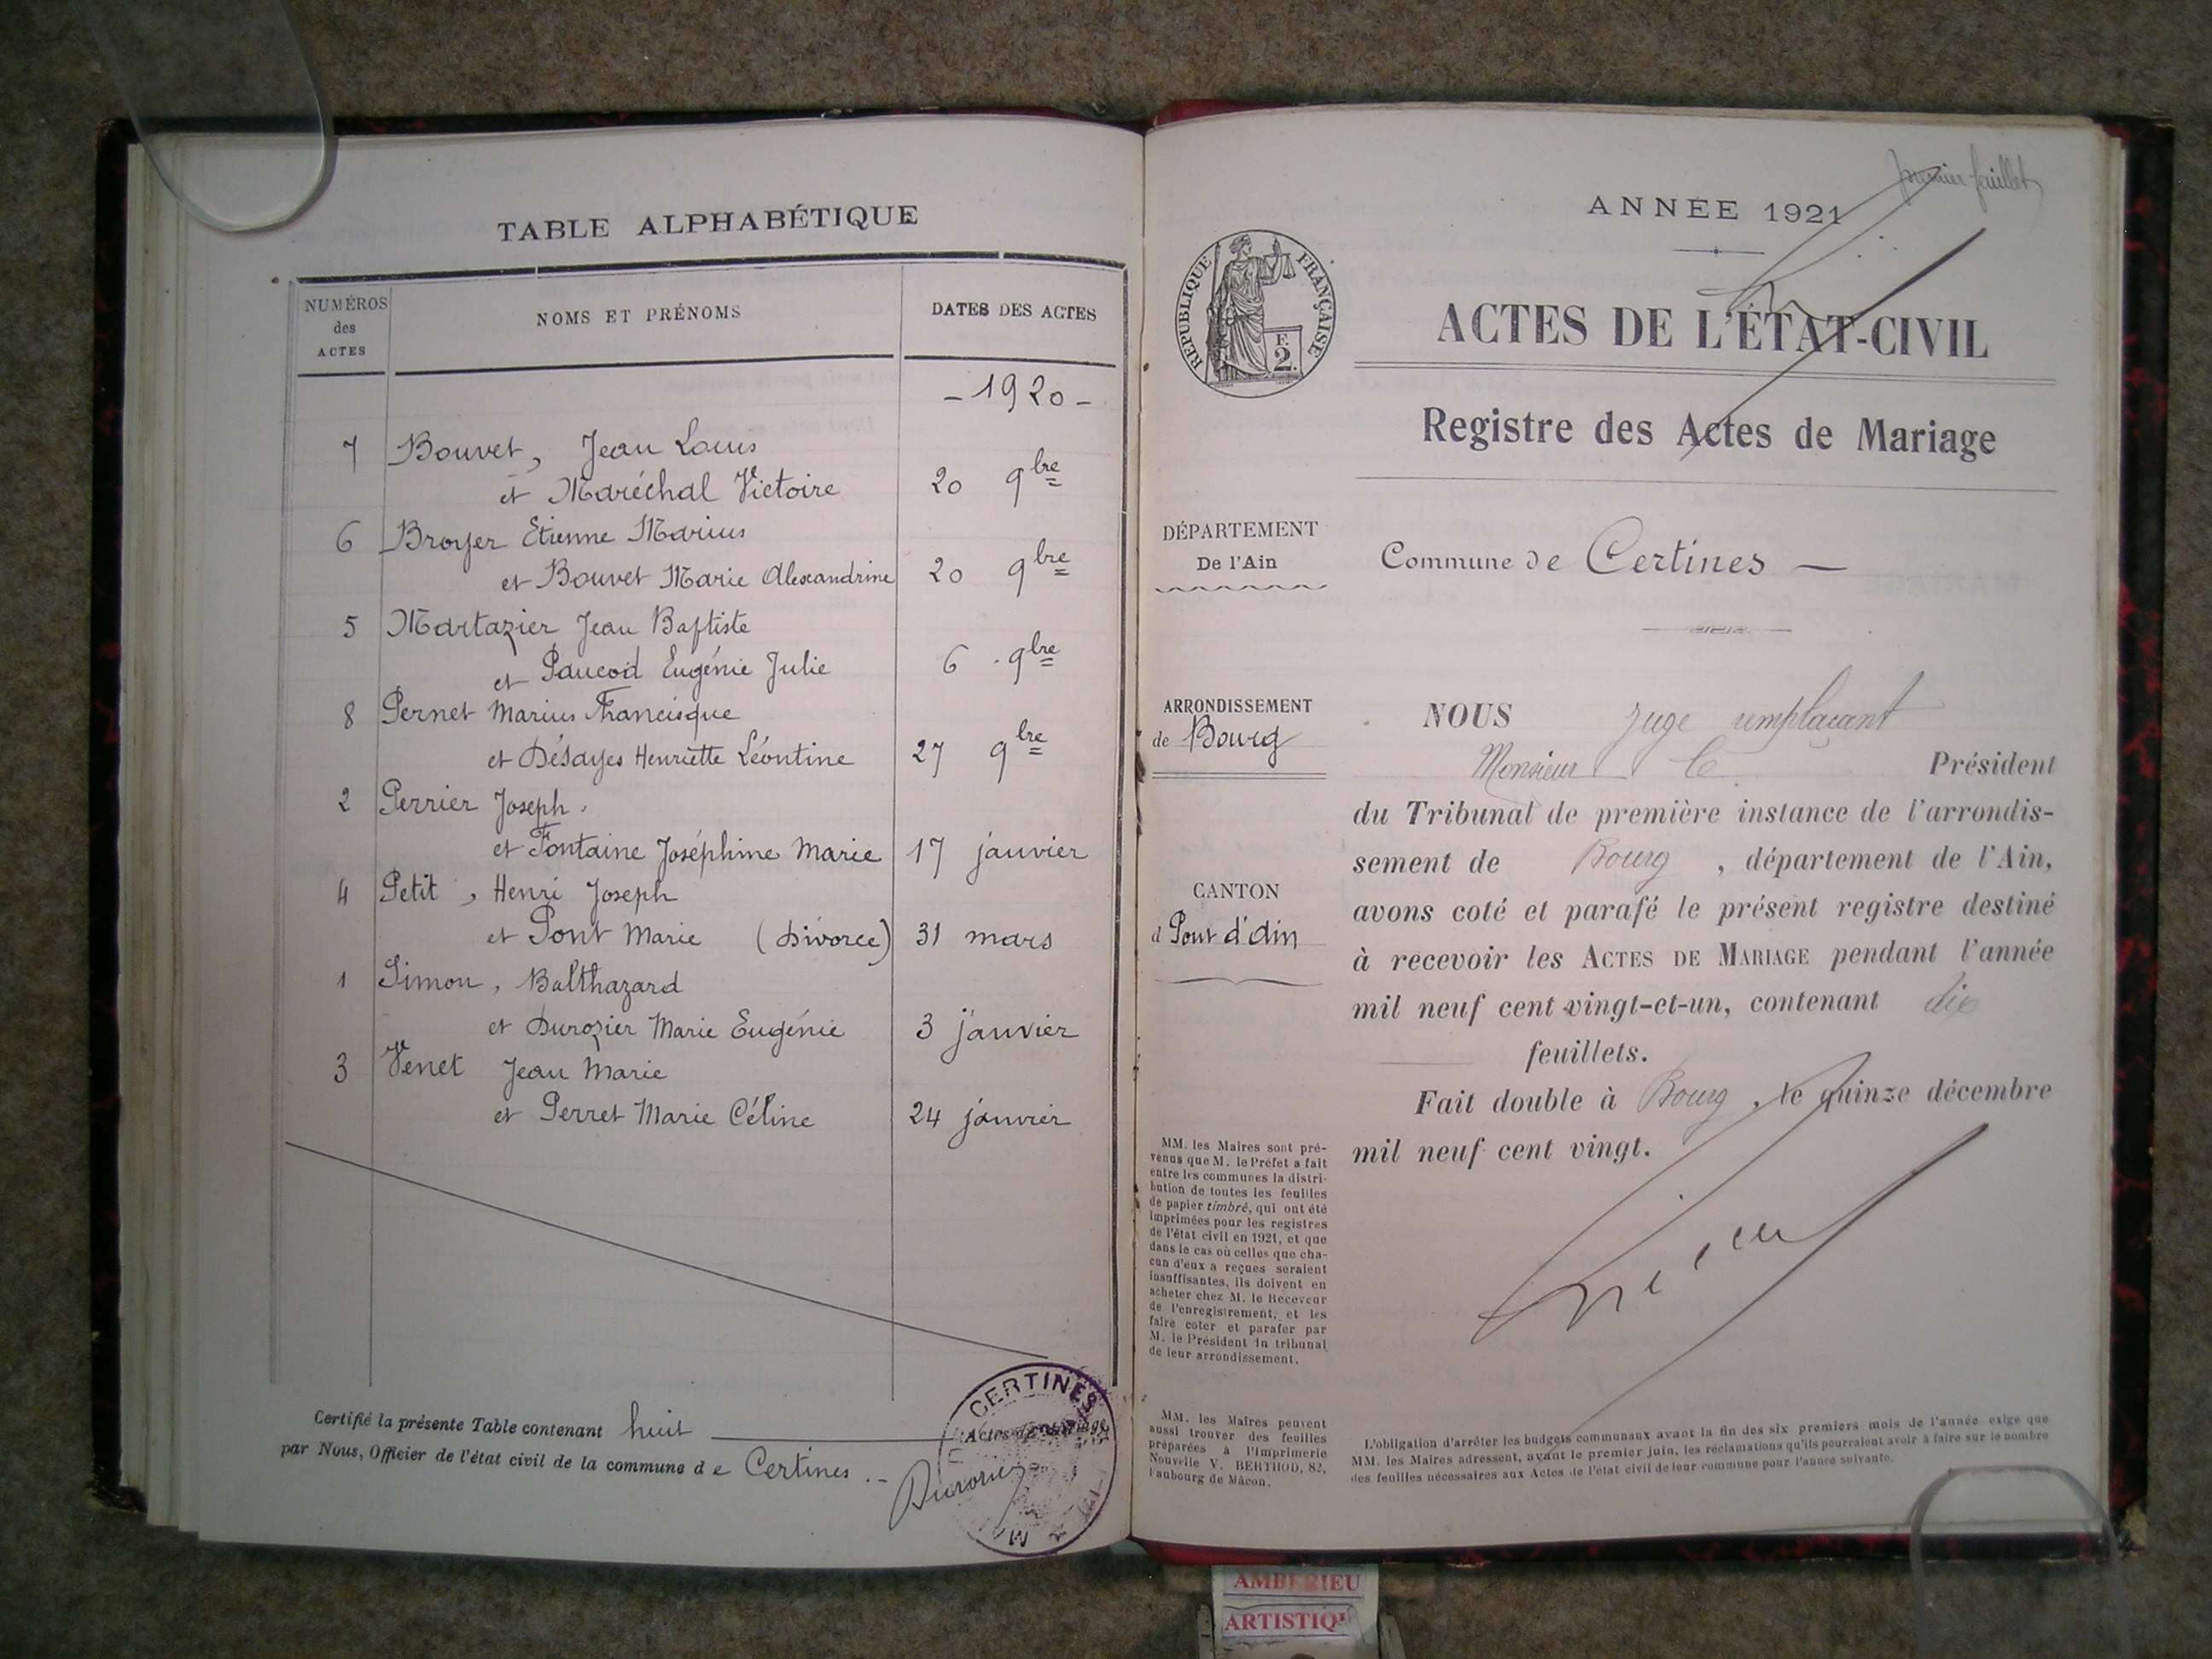 TABLE ALPHABÉTIQUE
NUMÉROS des ACTES
NOMS ET PRÉNOMS
DATES DES ACTES
- 1920 -
7 Bouvet, Jean Louis
et Maréchal Victoire 20 9bre
6 Broyer Etienne Marius
et Bouvet Marie Alexandrine 20 9bre
5 Martazier Jean Baptiste
et Paucod Eugénie Julie 6 9bre
8 Pernet Marius Francisque
et Désayes Henriette Léontine 27 9bre
2 Perrier Joseph
et Fontaine Joséphine Marie 17 janvier
4 Petit, Henri Joseph
et Pont Marie (Divorce) 31 mars
1 Simon, Balthazard
et Durozier Marie Eugénie 3 janvier
3 Venet Jean Marie
et Perret Marie Céline 24 janvier
Certifié la présente Table contenant huit
Actes de Mariage
par Nous, Officier de l'état civil de la commune de Certines
CERTINES
premier feuillet
ANNÉE 1921
RÉPUBLIQUE FRANÇAISE
E.
2.
ACTES DE L'ÉTAT-CIVIL
Registre des Actes de Mariage
DÉPARTEMENT
De l'Ain
Commune de Certines —
ARRONDISSEMENT
de Bourg
CANTON
d Pont d'Ain
NOUS juge remplaçant
Monsieur le Président
du Tribunal de première instance de l'arrondis-
sement de Bourg, département de l'Ain,
avons coté et parafé le présent registre destiné
à recevoir les ACTES DE MARIAGE pendant l'année
mil neuf cent vingt-et-un, contenant dix
feuillets.
Fait double à Bourg, le quinze décembre
mil neuf cent vingt.
MM. les Maires sont pré-
venus que M. le Préfet a fait
entre les communes la distri-
bution de toutes les feuilles
de papier timbré, qui ont été
imprimées pour les registres
de l'état civil en 1921, et que
dans le cas où celles que cha-
cun d'eux a reçues seraient
insuffisantes, ils doivent en
acheter chez M. le Receveur
de l'enregistrement, et les
faire coter et parafer par
M. le Président du tribunal
de leur arrondissement.
MM. les Maires peuvent
aussi trouver des feuilles
préparées à l'Imprimerie
Nouvelle V. BERTHOD, 82,
Faubourg de Mâcon.
L'obligation d'arrêter les budgets communaux avant la fin des six premiers mois de l'année exige que
MM. les Maires adressent, avant le premier juin, les réclamations qu'ils pourraient avoir à faire sur le nombre
des feuilles nécessaires aux Actes de l'état civil de leur commune pour l'année suivante.
AMBERIEU
ARTISTIQU